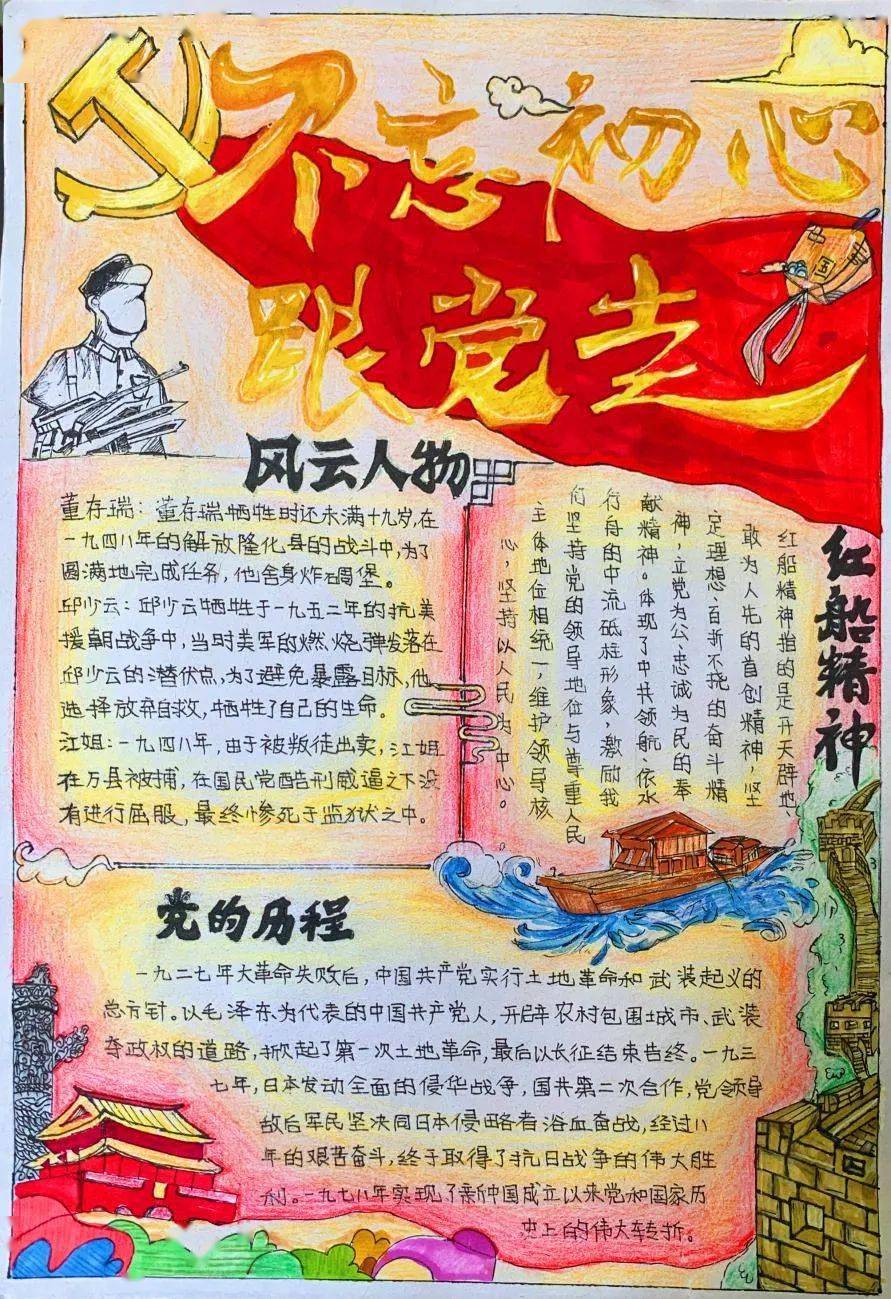 不忘初心
跟党走
风云人物
董存瑞：董存瑞牺牲时还未满十九岁，在
一九四八年的解放隆化县的战斗中，为了
圆满地完成任务，他舍身炸碉堡。
邱少云：邱少云牺牲于一九五二年的抗美
援朝战争中，当时美军的燃烧弹发落在
邱少云的潜伏点，为了避免暴露目标，他
选择放弃自救，牺牲了自己的生命。
江姐：一九四八年，由于被叛徒出卖，江姐
在万县被捕，在国民党酷刑威逼之下没
有进行屈服，最终惨死于监狱之中。
红船精神
红船精神指的是开天辟地、
敢为人先的首创精神，坚
定理想、百折不挠的奋斗精
神，立党为公、忠诚为民的奉
献精神。体现了中共领航、依水
行舟的中流砥柱形象，激励我
们坚持党的领导地位与尊重人民
主体地位相统一，维护领导核
心，坚持以人民为中心。
党的历程
一九二七年大革命失败后，中国共产党实行土地革命和武装起义的
总方针。以毛泽东为代表的中国共产党人，开辟农村包围城市、武装
夺政权的道路，掀起了第一次土地革命，最后以长征结束告终。一九三
七年，日本发动全面的侵华战争，国共第二次合作，党领导
敌后军民坚决同日本侵略者浴血奋战，经过八
年的艰苦奋斗，终于取得了抗日战争的伟大胜
利。一九七八年实现了新中国成立以来党和国家历
史上的伟大转折。